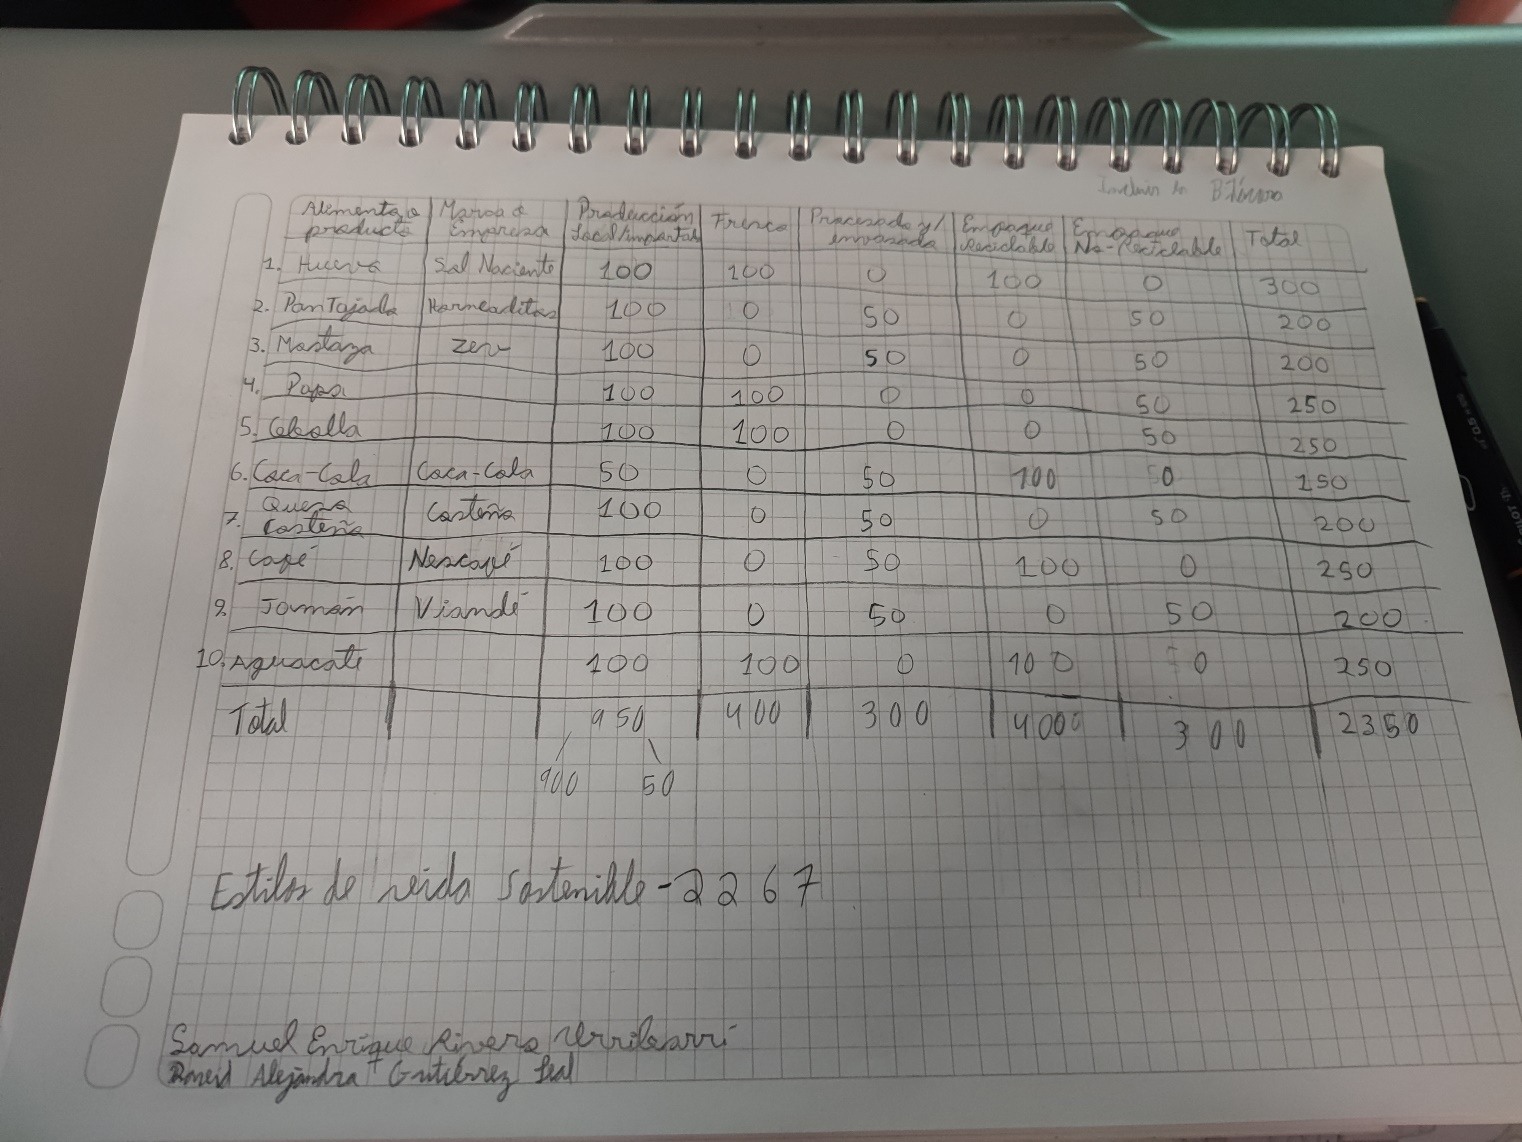 Incluir en Bitácora
Alimento o producto | Marca o Empresa | Producción Local/importada | Fresco | Procesado y/ envasado | Empaque Reciclable | Empaque No-Reciclable | Total
1. Huevo | Sol Naciente | 100 | 100 | 0 | 100 | 0 | 300
2. Pan Tajado | Horneaditos | 100 | 0 | 50 | 0 | 50 | 200
3. Mostaza | Zev | 100 | 0 | 50 | 0 | 50 | 200
4. Papa | 100 | 100 | 0 | 0 | 50 | 250
5. Cebolla | 100 | 100 | 0 | 0 | 50 | 250
6. Coca-Cola | Coca-Cola | 50 | 0 | 50 | 100 | 0 | 150
7. Queso Costeño | Costeño | 100 | 0 | 50 | 0 | 50 | 200
8. Café | Nescafé | 100 | 0 | 50 | 100 | 0 | 250
9. Jamón | Viandé | 100 | 0 | 50 | 0 | 50 | 200
10. Aguacate | 100 | 100 | 0 | 100 | 0 | 250
Total | 950 | 400 | 300 | 4000 | 300 | 2350
900 50
Estilos de vida Sostenible - 2267
Samuel Enrique Rivera Urribarrí
Alejandra Gutiérrez Leal